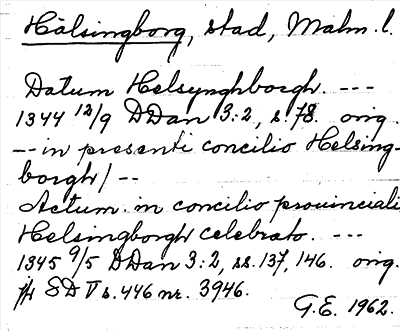 Hälsingborg, stad, Malm. l.
Datum Helsynghborgh. ---
1344 12/9 DDan 3:2, s. 78. orig.
-- in presenti concilio Helsing-
borgh/ --
Actum in concilio prouinciali
Helsingborgh celebrato. ---
1345 9/5 DDan 3:2, ss. 137, 146. orig.
SD V s. 446 nr. 3946.
G.E. 1962.